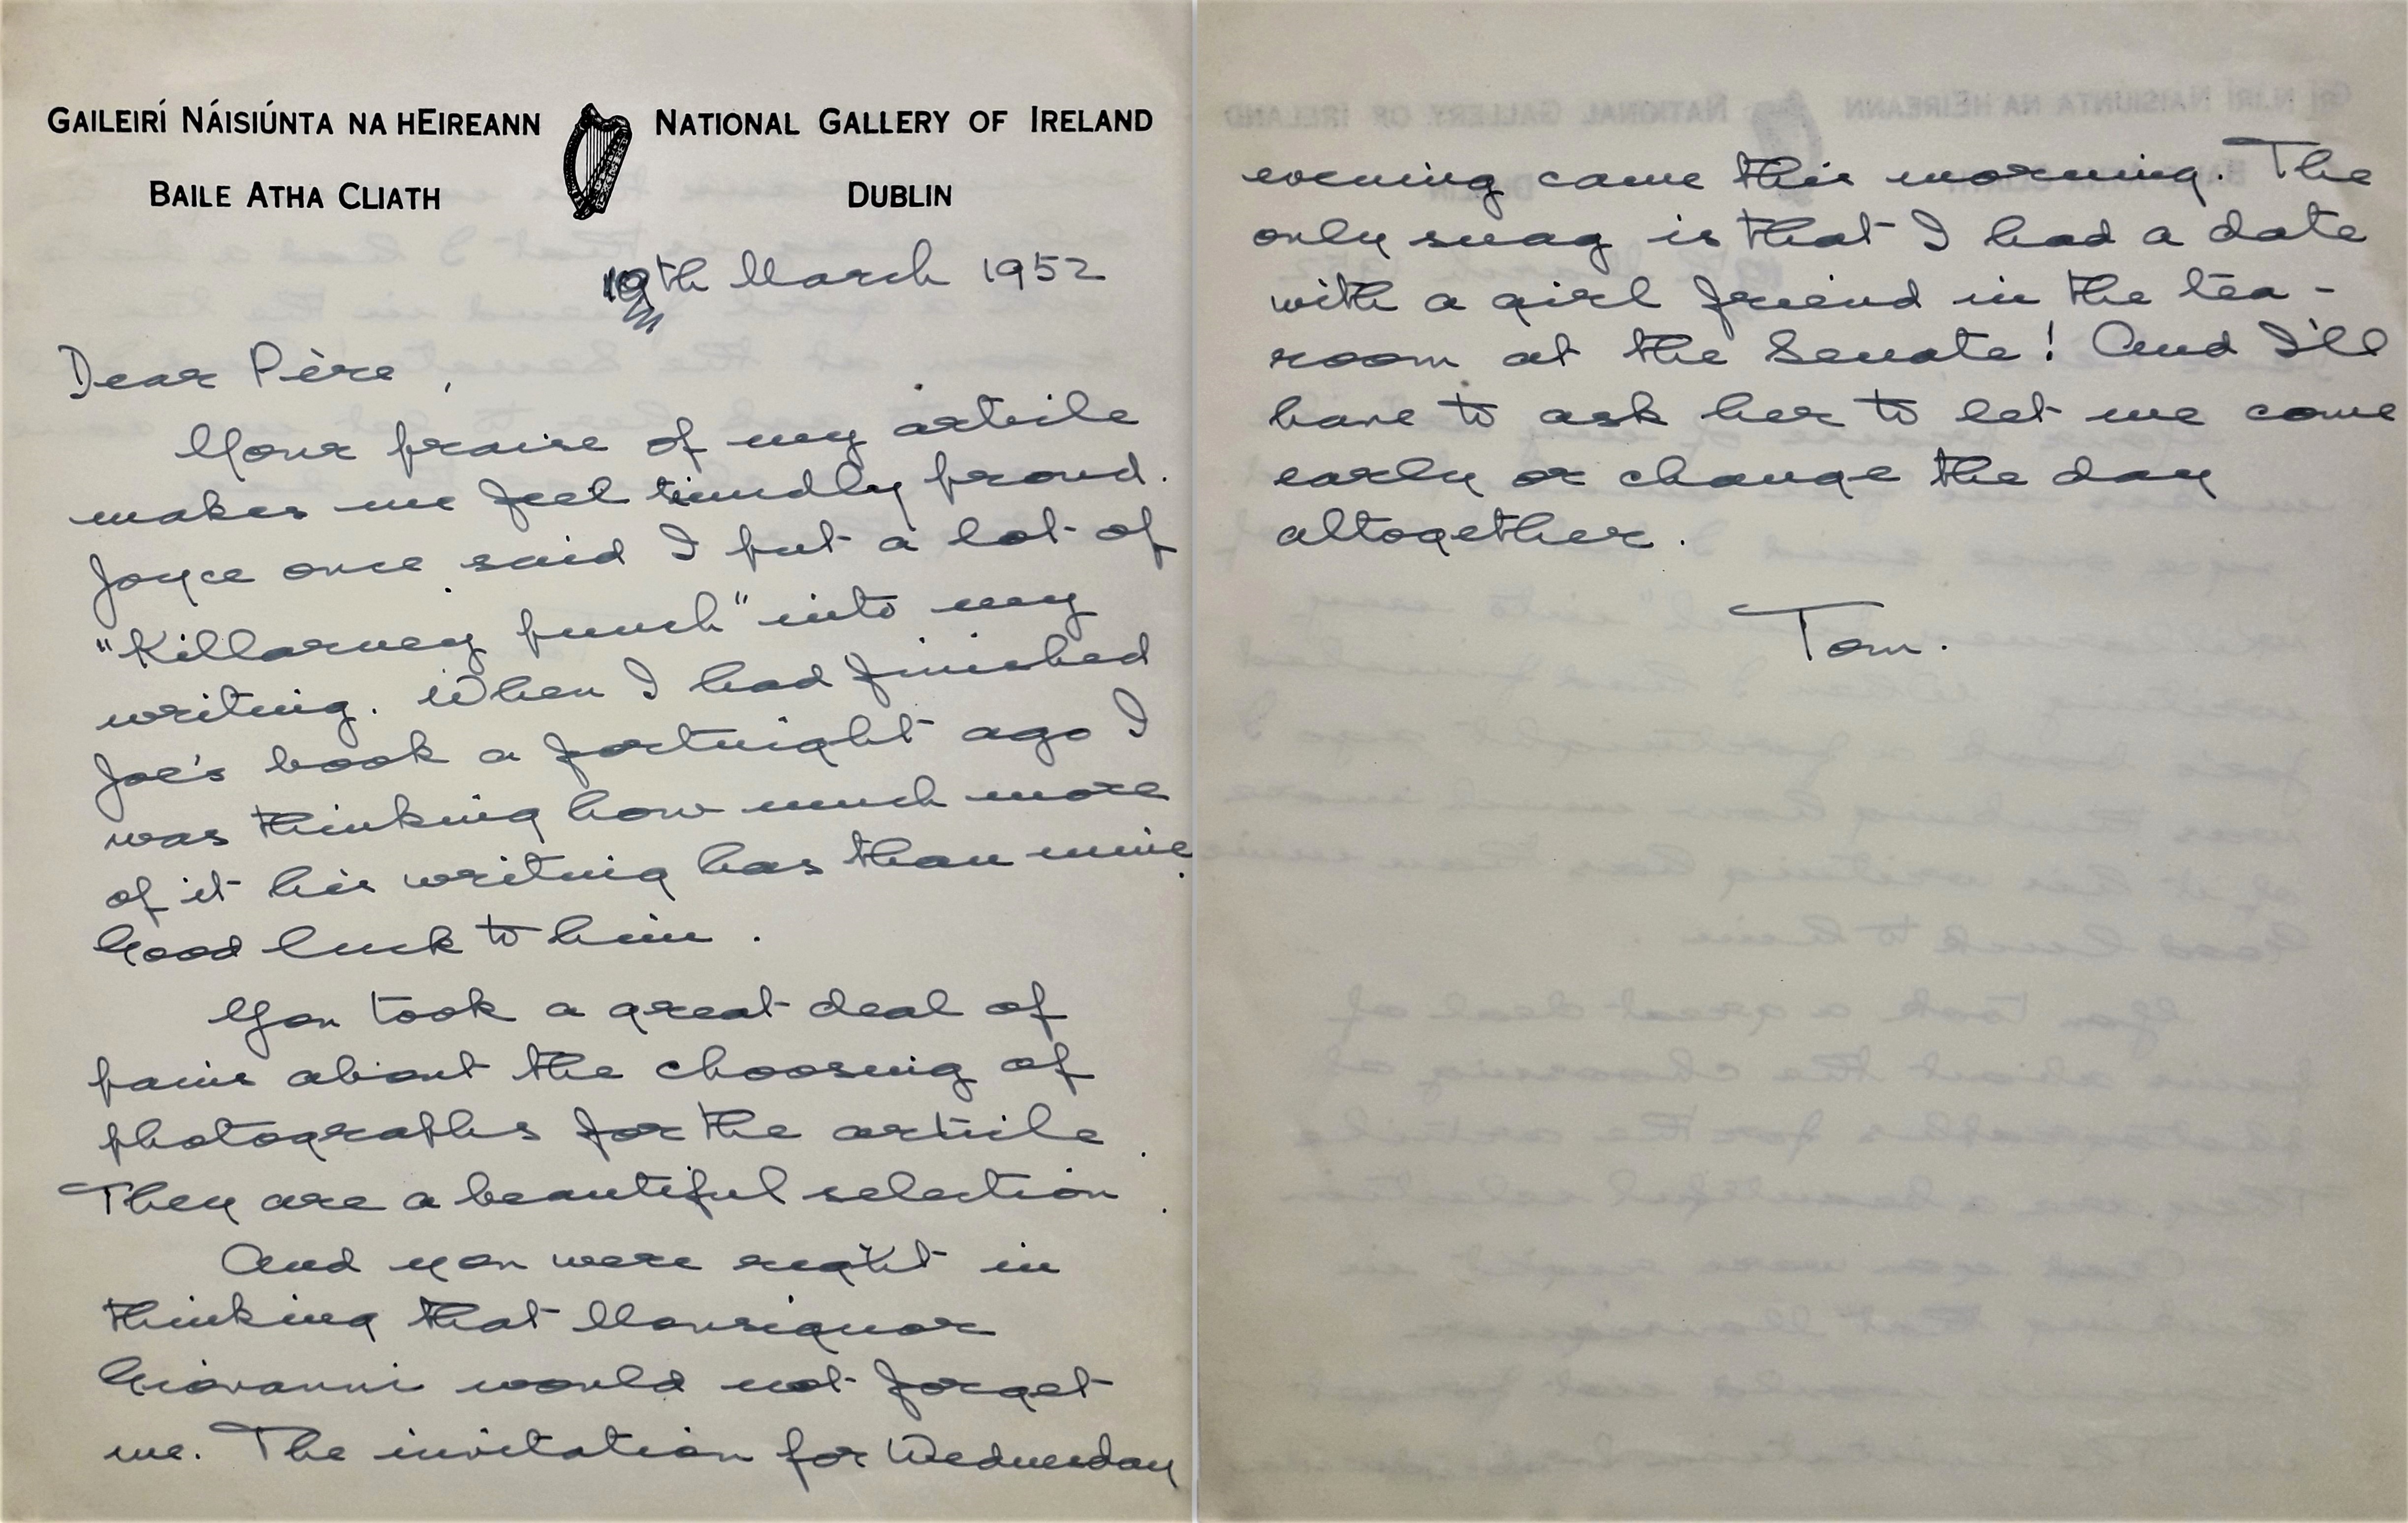 GAILEIRÍ NÁISIÚNTA NA hEIREANN NATIONAL GALLERY OF IRELAND
BAILE ATHA CLIATH DUBLIN
19th March 1952
Dear Père,
Your praise of my article
makes me feel timidly proud.
Joyce once said I put a lot of
"Killarney punch" into my
writing. When I had finished
Joe's book a fortnight ago I
was thinking how much more
of it his writing has than mine.
Good luck to him.
You took a great deal of
pains about the choosing of
photographs for the article.
They are a beautiful selection.
And you were right in
thinking that Monsignor
Giovanni would not forget
me. The invitation for Wednesday
evening came this morning. The
only snag is that I had a date
with a girl friend in the tea-
room at the Senate! And I'll
have to ask her to let me come
early or change the day
altogether.
Tom.